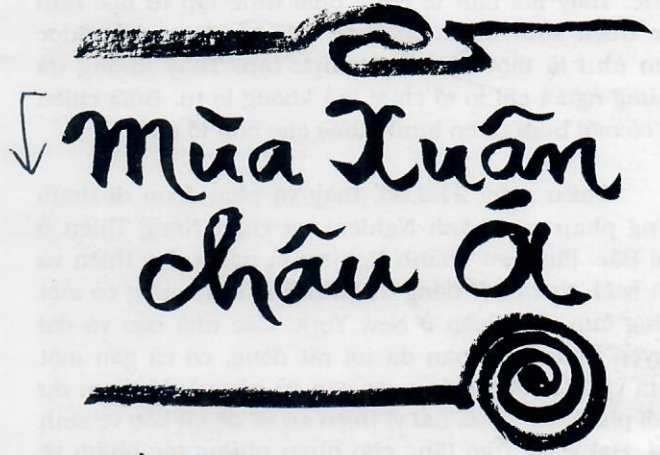 mùa xuân
châu á